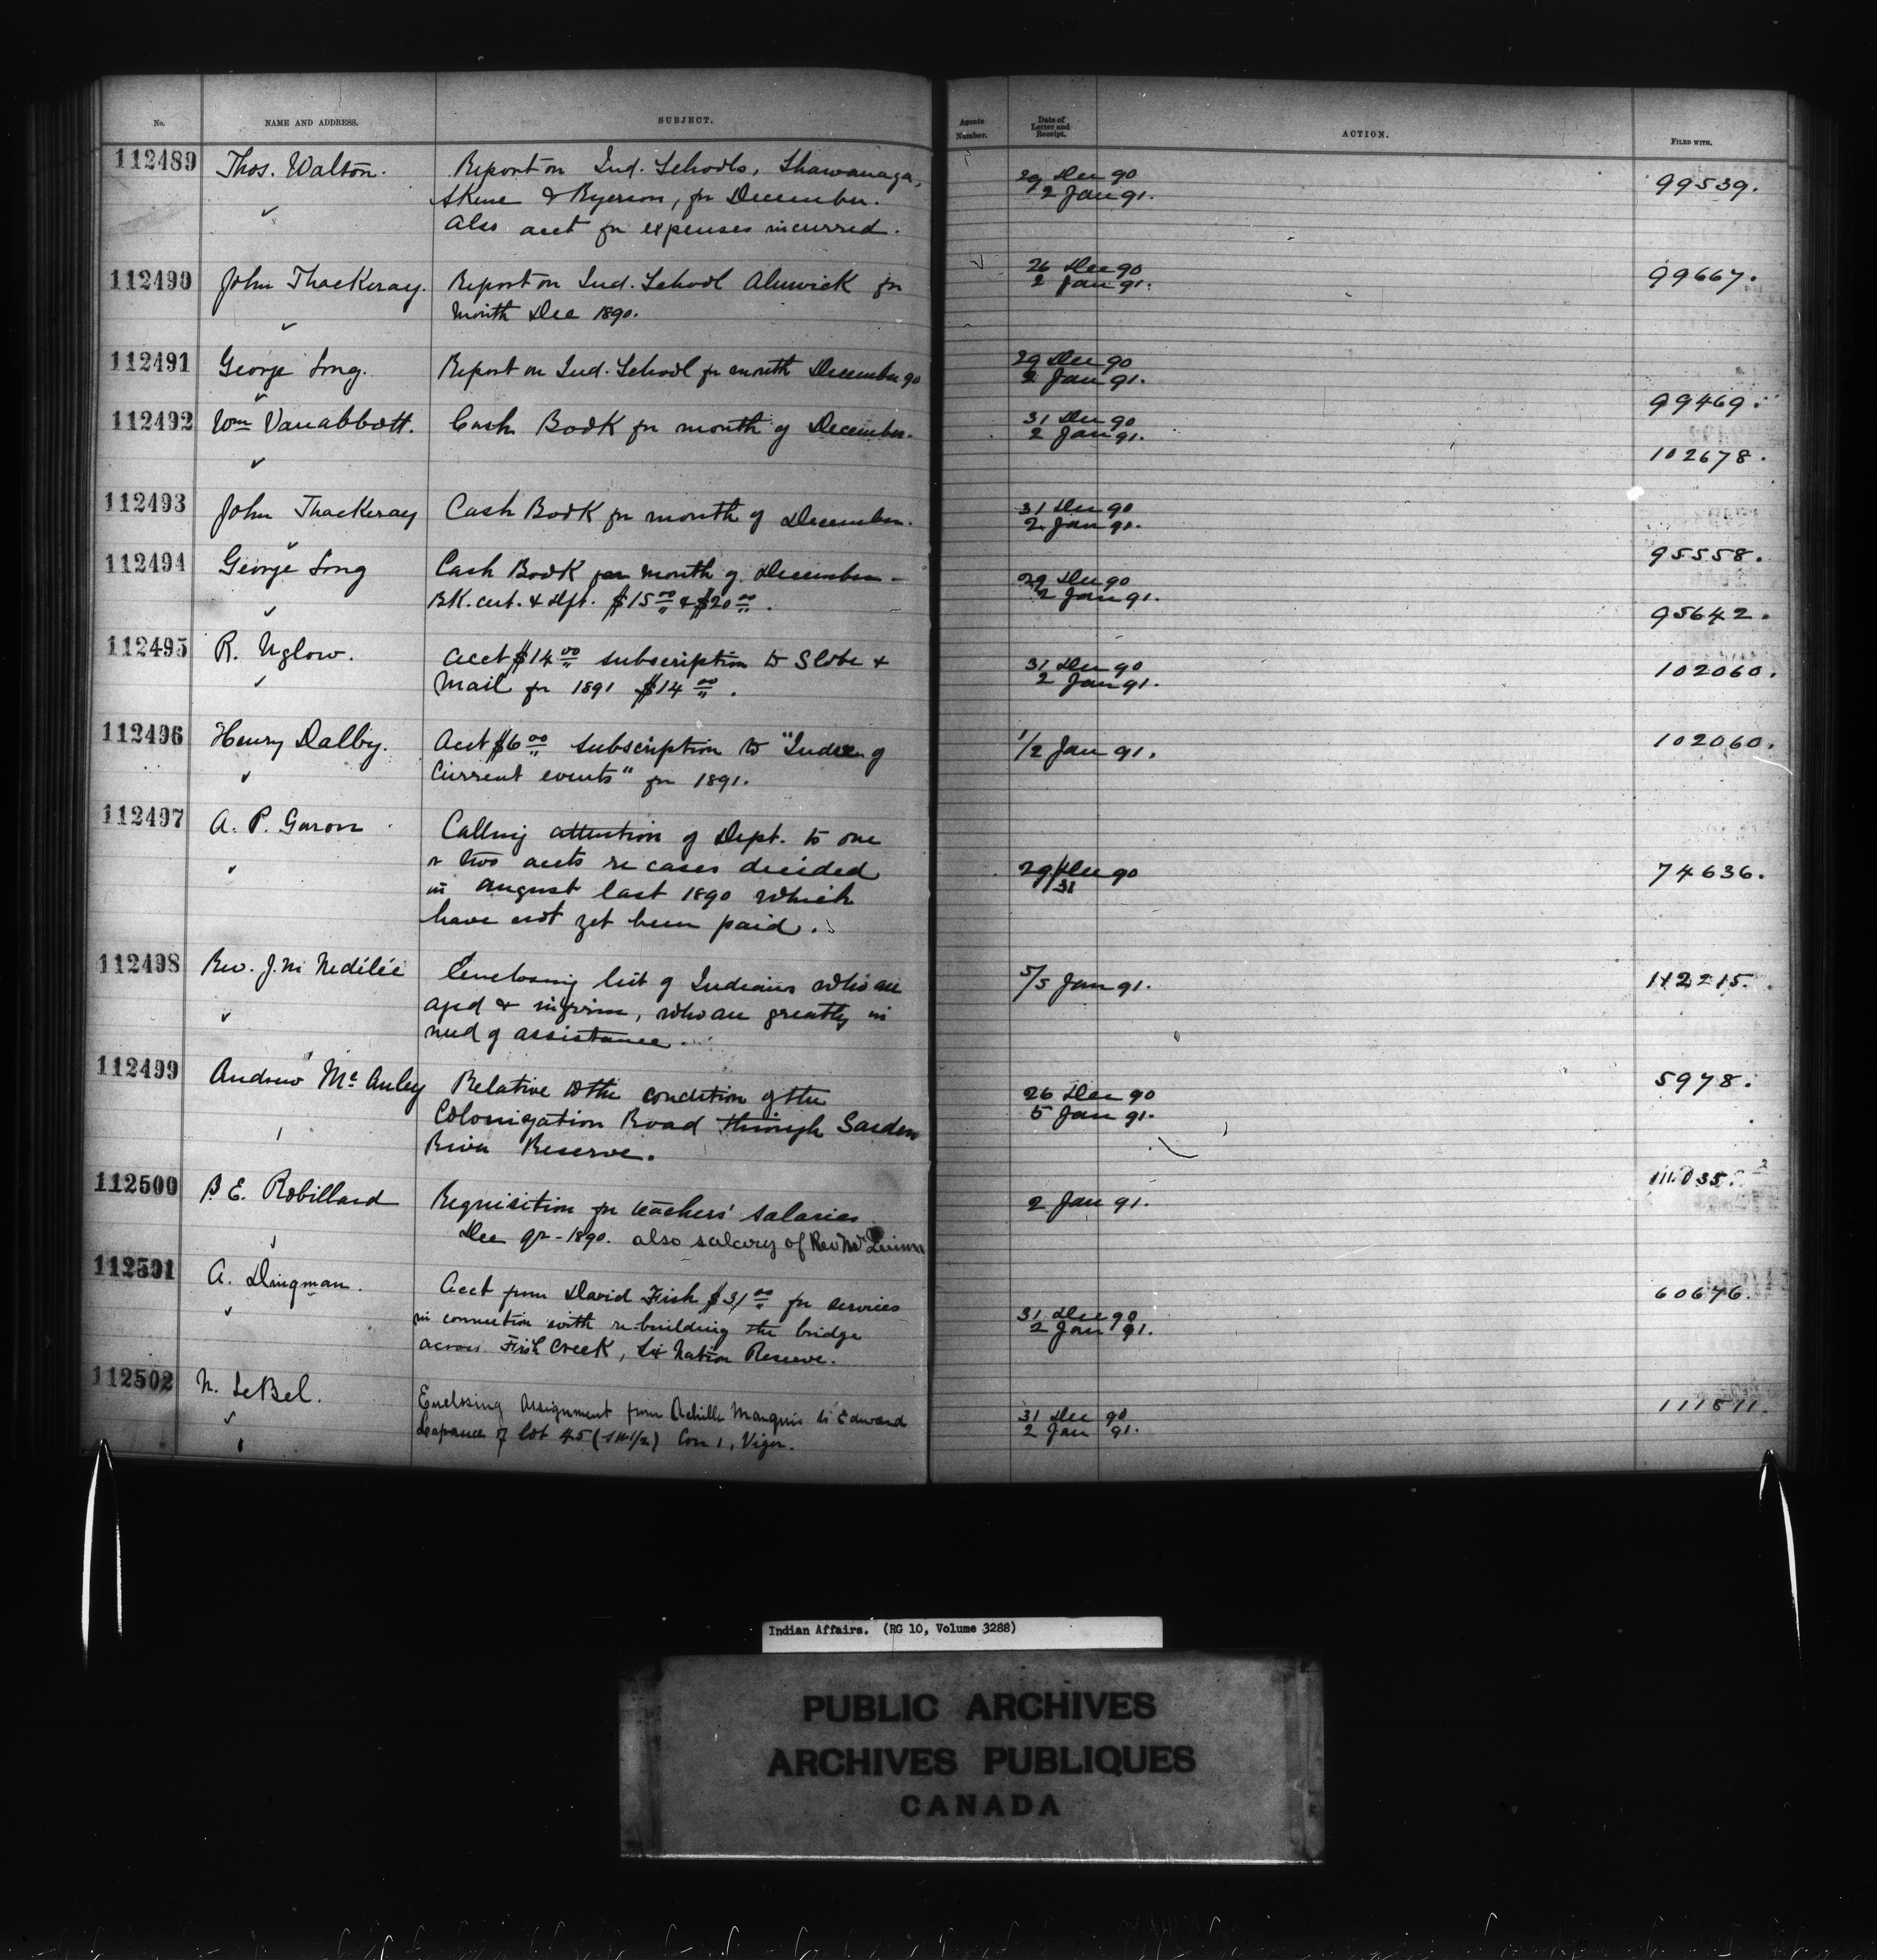 No. NAME AND ADDRESS. SUBJECT. Agents Number. Date of Letter and Receipt. ACTION. FILED WITH.
112489 Thos. Walton. Report on Ind. Schools, Shawanaga, 29 Dec 90 99539.
Skene & Ryerson, for December. 2 Jan 91.
Also acct for expenses incurred.
112490 John Thackeray. Report on Ind. School Alnwick for 26 Dec 90 99667.
month Dec 1890. 2 Jan 91.
112491 George Long. Report on Ind. School for month December 90 29 Dec 90
2 Jan 91. 99469.
112492 Wm Vanabbott. Cash Book for month of December. 31 Dec 90
2 Jan 91. 102678.
112493 John Thackeray Cash Book for month of December. 31 Dec 90
2 Jan 91. 95558.
112494 George Long Cash Book for month of December - 29 Dec 90
BK. cert. & Dft. $15 00 & $20 00. 2 Jan 91. 95642.
112495 R. Uglow. Acct $14 00 subscription to Globe & 31 Dec 90 102060.
Mail for 1891 $14 00. 2 Jan 91.
112496 Henry Dalby. Acct $6 00 subscription to "Index of 1/2 Jan 91. 102060.
Current events" for 1891.
112497 A. P. Garon Calling attention of Dept. to one
or two accts re cases decided 29/31 Dec 90 74636.
in August last 1890 which
have not yet been paid.
112498 Rev. J. M Nedélèc Enclosing list of Indians who are 5/5 Jan 91. 112215.
aged & infirm, who are greatly in
need of assistance.
112499 Andrew Mc Auley Relative to the condition of the 26 Dec 90 5978.
Colonization Road through Garden 5 Jan 91.
River Reserve.
112500 B. E. Robillard Requisition for teachers' salaries 2 Jan 91. 111035.
Dec qr - 1890. also salary of Rev Mr
112501 A. Dingman. Acct from David Fish $31 00 for services 31 Dec 90 60676.
in connection with re-building the bridge 2 Jan 91.
across Fish Creek, Six Nation Reserve.
112502 N. LeBel. Enclosing Assignment from Achille Marquis to Edward 31 Dec 90 111811.
of lot 45 Con 1, Viger. 2 Jan 91.
Indian Affairs. (RG 10, Volume 3288)
PUBLIC ARCHIVES
ARCHIVES PUBLIQUES
CANADA